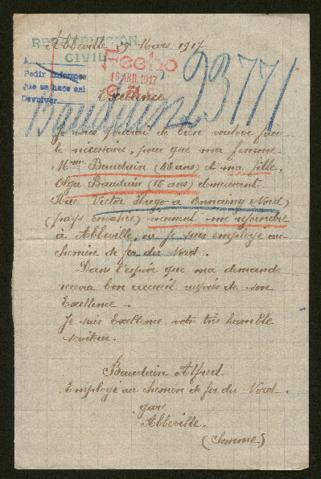 Abbeville, Mars 1917
REPATRIACION
CIVIL
A
Pedir informes
Que se hace así
Devolver
Fecho
16 ABR. 1917
23771
Baudouin
Excellence
Je vous prierai de bien vouloir faire
le nécessaire, pour que ma femme
Mme Baudouin (48 ans) et ma fille,
Olga Baudouin (16 ans) demeurant
Rue Victor Hugo à Onnaing (Nord)
(pays envahis) viennent me rejoindre
à Abbeville, où je suis employé au
chemin de fer du Nord.
Dans l'espoir que ma demande
recevra bon accueil auprès de son
Excellence.
Je suis Excellence votre très humble
serviteur.
Alfred
Employé au chemin de fer du Nord.
gare
Abbeville.
(Somme)